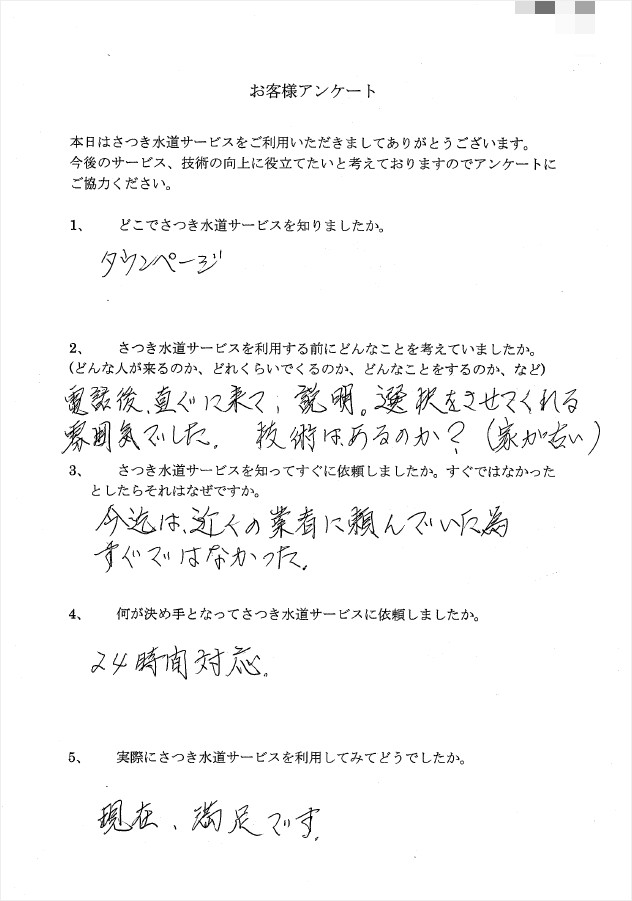 お客様アンケート
本日はさつき水道サービスをご利用いただきましてありがとうございます。
今後のサービス、技術の向上に役立てたいと考えておりますのでアンケートに
ご協力ください。
1、 どこでさつき水道サービスを知りましたか。
タウンページ
2、 さつき水道サービスを利用する前にどんなことを考えていましたか。
(どんな人が来るのか、どれくらいでくるのか、どんなことをするのか、など)
電話後、直ぐに来て、説明。選状をさせてくれる
雰囲気でした。 技術はあるのか?(家が古い)
3、 さつき水道サービスを知ってすぐに依頼しましたか。すぐではなかった
としたらそれはなぜですか。
今迄は、近くの業者に頼んでいた為
すぐではなかった。
4、 何が決め手となってさつき水道サービスに依頼しましたか。
24時間対応。
5、 実際にさつき水道サービスを利用してみてどうでしたか。
現在、満足です。